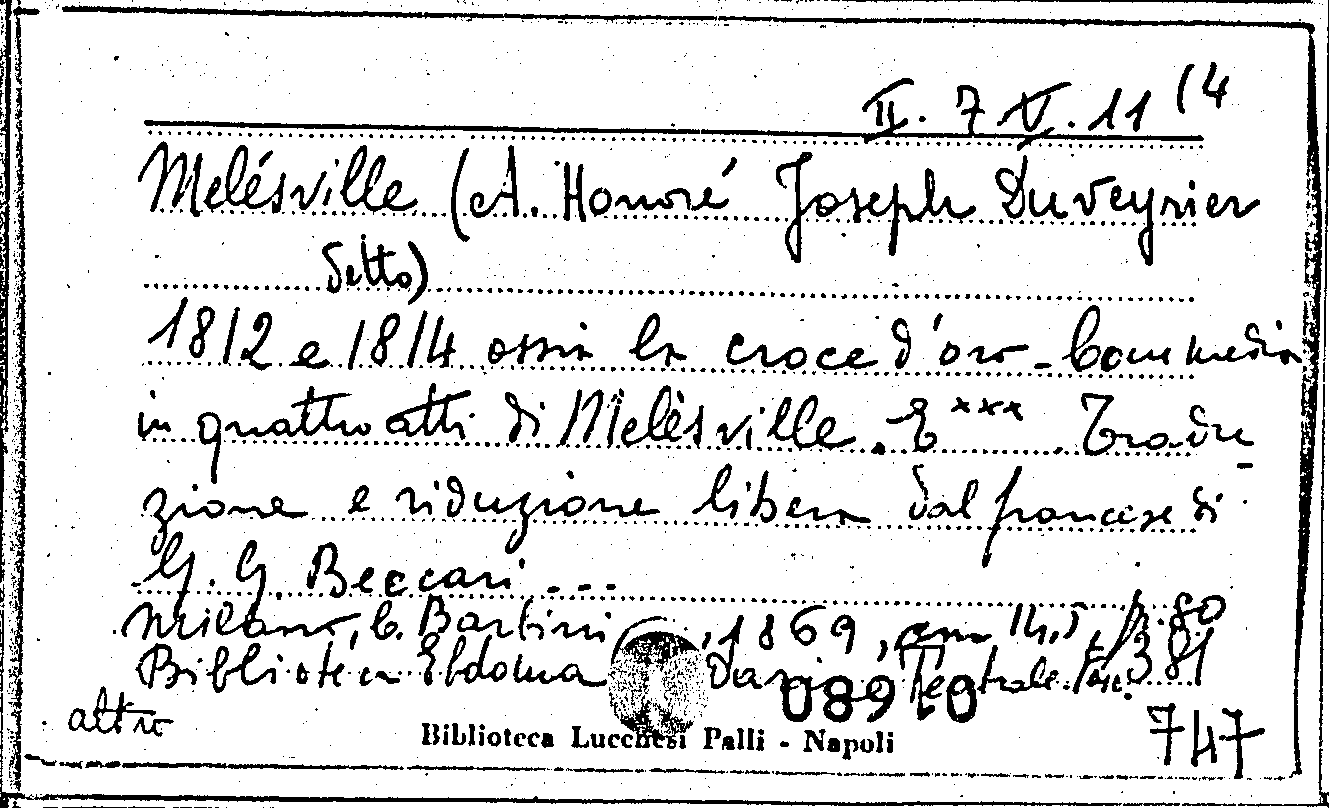 II. 7 V. 11 (4
Melésville (A. Honoré Joseph Duveyrier
detto)
1812 e 1814 ossia la croce d'oro - Commedia
in quattro atti di Melèsville. E*** . Tradu
zione e riduzione libera dal francese di
G. G. Beccari ...
Milano, C. Barbini, 1869, cm 14,5, p. 80
Biblioteca Ebdomadaria Teatrale. Fasc. 381
089.0
altro
Biblioteca Lucchesi Palli - Napoli
747